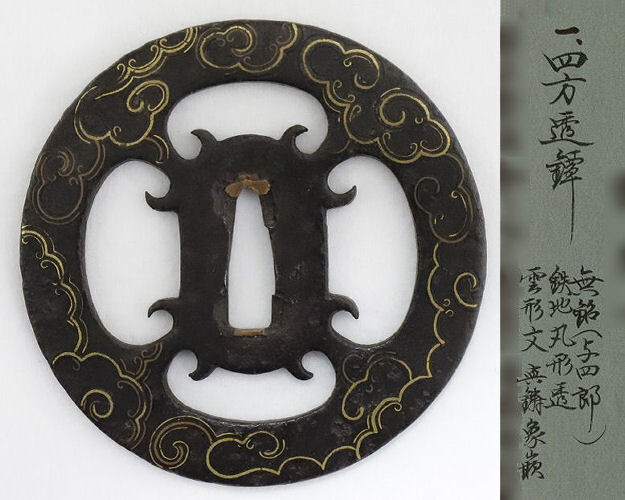 一、四方透鐔
無銘(与四郎)
鉄地丸形透
雲形文 真鍮象嵌